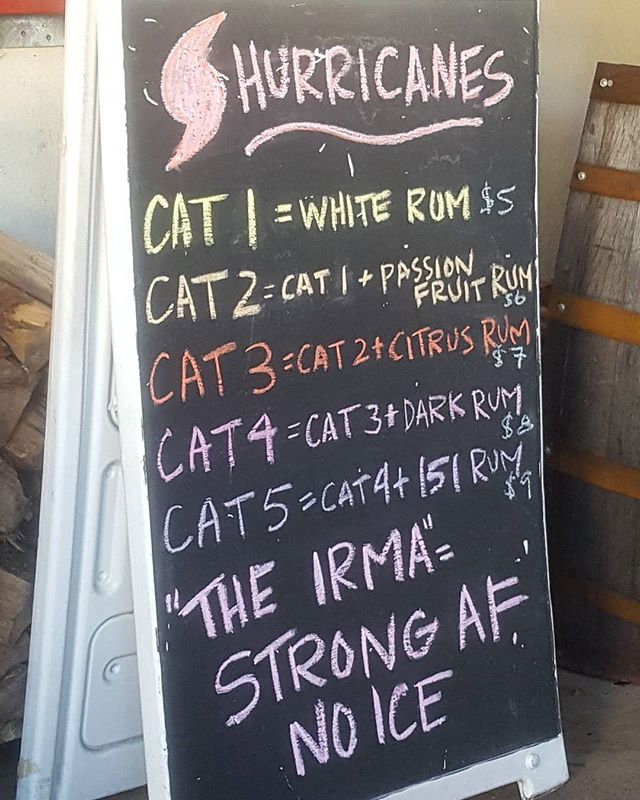 HURRICANES
CAT 1 = WHITE RUM $5
CAT 2 = CAT 1 + PASSION
FRUIT RUM
$6
CAT 3 = CAT 2 + CITRUS RUM
$7
CAT 4 = CAT 3 + DARK RUM
$8
CAT 5 = CAT 4 + 151 RUM
$9
"THE IRMA" =
STRONG AF.
NO ICE